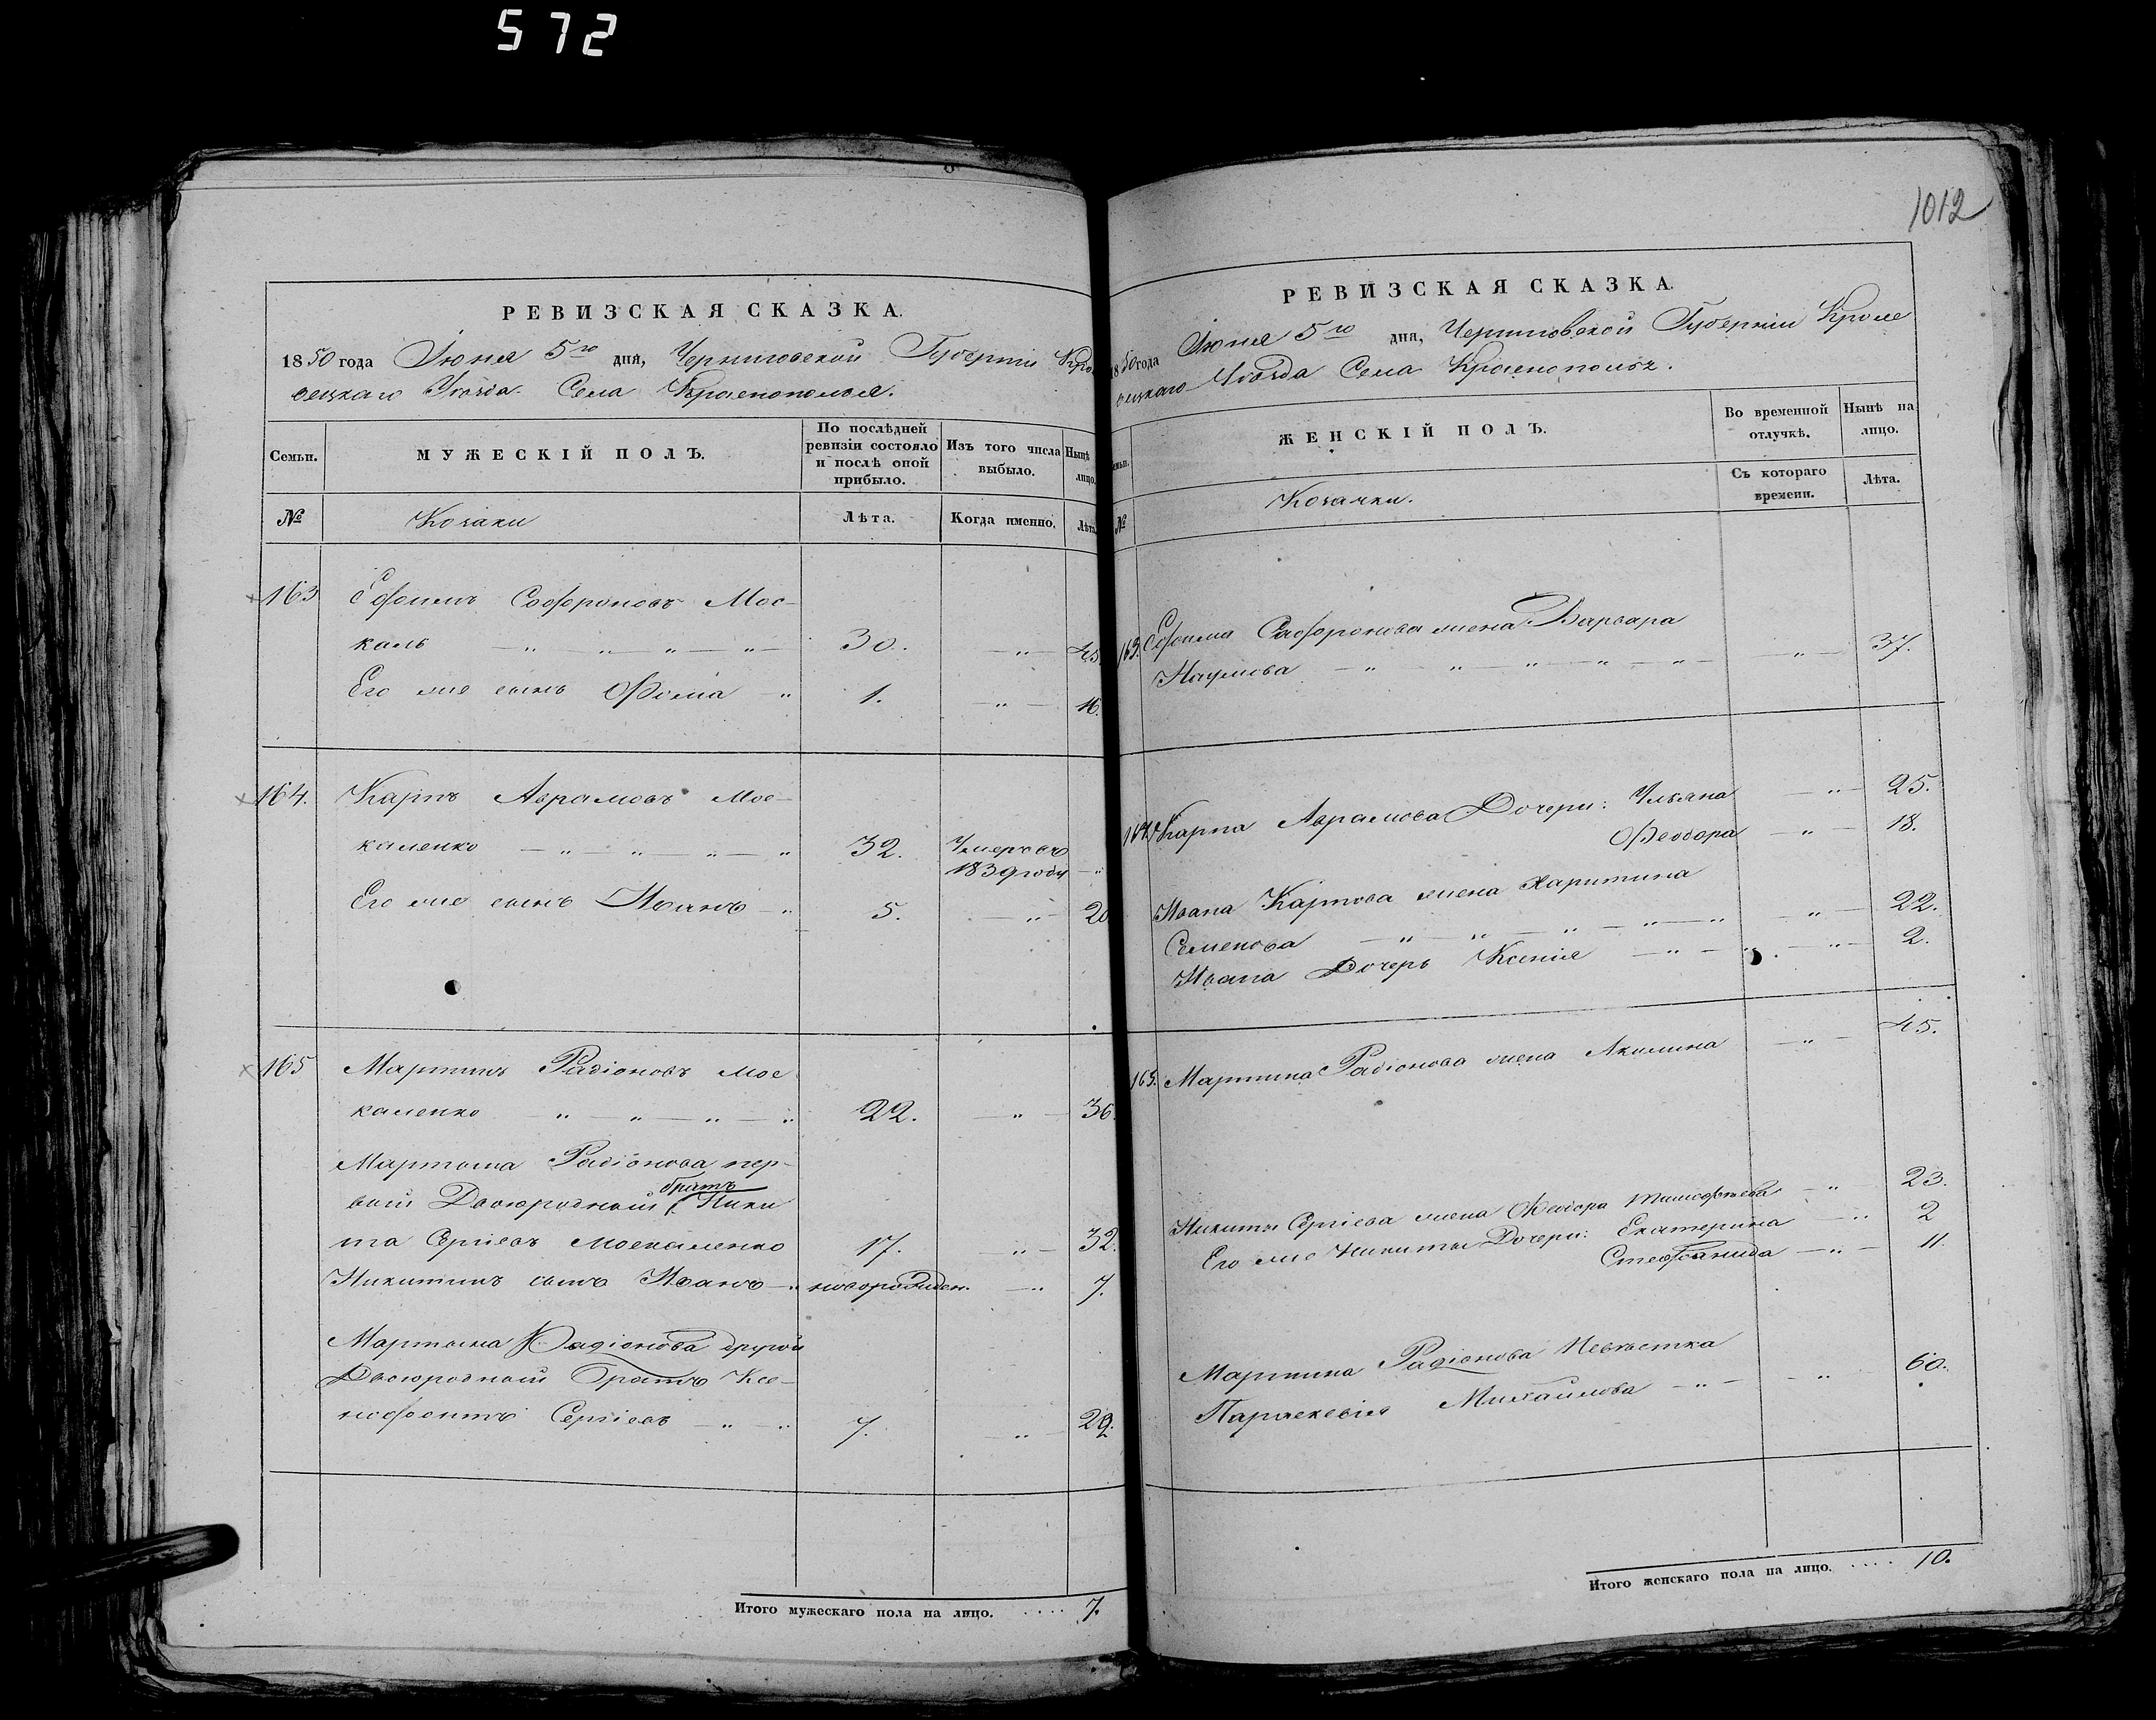 572
РЕВИЗСКАЯ СКАЗКА.
1850 года Іюня 5го дня, Черниговской Губерніи Кро
вецкаго Уѣзда. Села Краснополья.
Семьи. МУЖЕСКІЙ ПОЛЪ. По послѣдней ревизіи состояло и послѣ оной прибыло. Изъ того числа выбыло. Нынѣ лицо.
№ Козаки Лѣта. Когда именно. Лѣта
163 Ефимъ Софроновъ Мос-
каль — „ — „ — „ — „ — 30. — „ — 45.
Его же сынъ Фома — „ 1. — „ — 16.
164. Карпъ Аврамовъ Мос-
каленко — „ — „ — „ — „ 32. Умеръ въ
1839 году — „
Его же сынъ Иванъ — „ 5. — „ — 20
165 Мартинъ Радіоновъ Мос
каленко — „ — „ — „ — „ 22. — „ — 36.
Мартына Радіонова пер-
вый Двоюродный братъ Ники
та Сергіевъ Москаленко 17. „ — 32.
Никитинъ сынъ Иванъ — „ новорожден. — „ 7.
Мартына Радіонова другой
Двоюродный Братъ Ксе-
нофонтъ Сергіевъ — „ — „ 7. — „ — 22.
Итого мужескаго пола на лицо. .... 7.
1012
РЕВИЗСКАЯ СКАЗКА.
1850 года Іюня 5го дня, Черниговской Губерніи Кроле
вецкаго Уѣзда Села Краснополья.
ЖЕНСКІЙ ПОЛЪ. Во временной отлучкѣ. Нынѣ на лицо.
№ Козачки. Съ котораго времени. Лѣта.
163. Ефима Сафронова жена Варвара
Наумова — „ — „ — „ — „ — „ — — „ — 37.
164. Карпа Аврамова Дочери: Ульяна — „ — 25.
Феодора — „ — 18.
Ивана Карпова жена Харитина
Семенова — „ — „ — „ — „ — „ — „ — 22.
Ивана Дочерь Ксенія — „ — „ — „ — 2.
165. Мартина Радіонова жена Акилина — „ — 45.
Никиты Сергіева жена Феодора Тимофѣева — „ — 23.
Его же Никиты Дочери: Екатерина — „ 2
Стефанида — „ — 11.
Мартина Радіонова Невѣстка
Параскевія Михайлова — „ — — „ — 60.
Итого женскаго пола на лицо. .... 10.